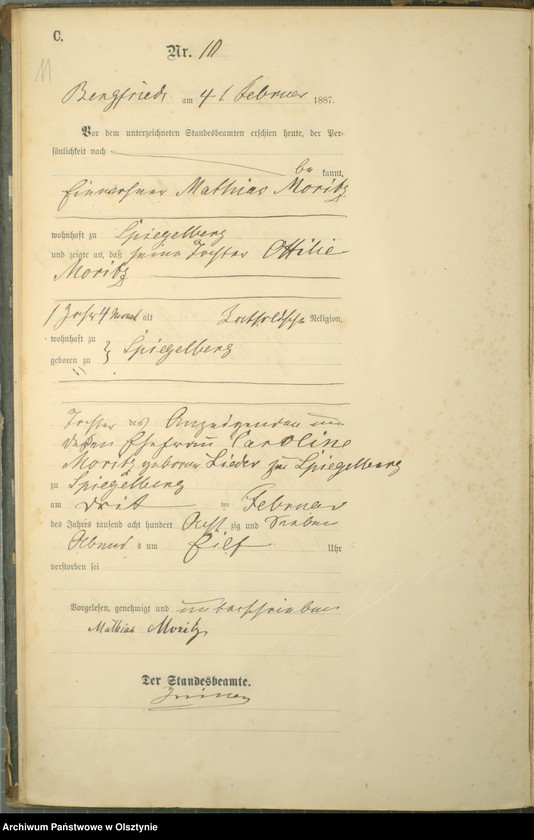 C.
Nr. 10
11
Bergfriede am 4 Februar 1887.
Vor dem unterzeichneten Standesbeamten erschien heute, der Per-
sönlichkeit nach
be kannt,
Einwohner Mathias Moritz
wohnhaft zu Spiegelberg
und zeigte an, daß seine Tochter Ottilie
Moritz
1 Jahr 4 Monat alt Katholischer Religion,
wohnhaft zu
geboren zu } Spiegelberg
Tochter des Anzeigenden und
dessen Ehefrau Caroline
Moritz geborene Lieder zu Spiegelberg
zu Spiegelberg
am drit ten Februar
des Jahres tausend acht hundert Acht zig und Sieben
Abend s um Eilf Uhr
verstorben sei
Vorgelesen, genehmigt und unterschrieben
Mathias Moritz
Der Standesbeamte.
Archiwum Państwowe w Olsztynie